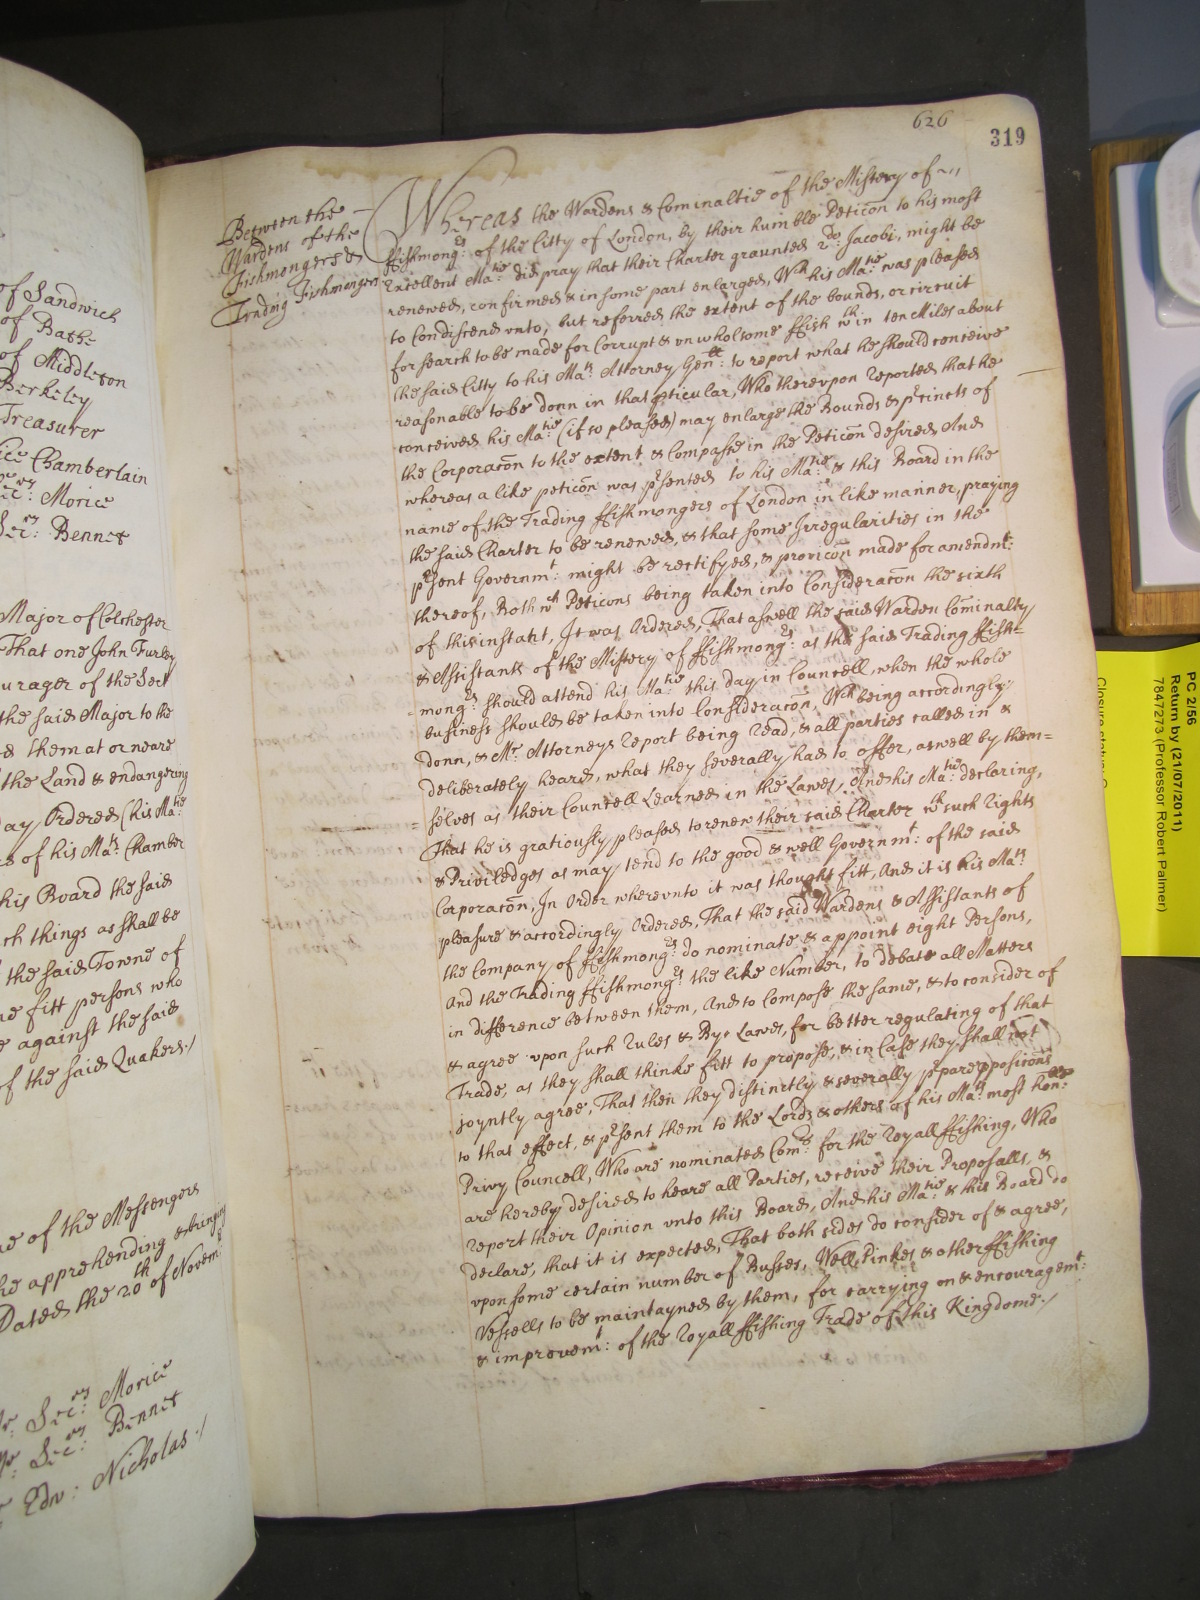 of Sandwich
of Bathe
of Middleton
Berkeley
Treasurer
Chamberlain
Secr̃y: Morice
Secr̃y: Bennet
Major of Colchester
That one John Furley
urager of the Sect
the said Major to the
them at or neare
the Land & endangering
ay Ordered (his Ma:tie
of his Ma:ts Chamber
his Board the said
ch things as shall be
the said Towne of
ne fitt persons who
against the said
of the said Quakers./
ne of the Messengers
he apprehending & bringing
Dated the 20th of Novem:
Mr Secr̃y: Morice
Mr Secr̃y: Bennet
Edw: Nicholas./
626
319
Between the
Wardens of the
Fishmongers &
Trading Fishmongers
Whereas the Wardens & Cominaltie of the Mistery of
ffishmong:rs of the Citty of London, by their humble Peticõn to his most
Excellent Ma:tie did pray that their Charter graunted 2do: Jacobi, might be
renewed, confirmed & in some part enlarged, Wch his Ma:tie was pleased
to Condiscend vnto, but referred the extent of the bounds, or circuit
for search to be made for Corrupt & vnwholsome ffish wthin ten Miles about
the said Citty to his Ma:ts Attorney Gen:ll to report what he should conceive
reasonable to be donn in that pticular, Who therevpon Reported that he
conceived his Ma:tie (if so pleased) may enlarge the Bounds & prcincts of
the Corporacõn to the extent & Compasse in the Peticõn desired And
whereas a like peticõn was prsented to his Ma:tie & this Board in the
name of the Trading ffishmongers of London in like manner, praying
the said Charter to be renewed, & that some Irregularities in the
prsent Governmt: might be rectifyed, & provicõn made for amendmt:
thereof, Both wch Peticons being taken into Consideracõn the sixth
of this instant, It was Ordered, That aswell the said Warden Cõminalty
& Assistants of the Mistery of ffishmong:rs as the said Trading ffish=
=mong:rs should attend his Ma:tie this day in Councell, when the whole
business should be taken into Consideracõn, Wch being accordingly
donn, & Mr. Attorneys Report being Read, & all parties called in &
deliberately heard, what they severally had to offer, aswell by them=
=selves as their Councell Learned in the Lawes, And his Ma:tie declaring,
That he is gratiously pleased to renew their said Charter wth such Rights
& Priviledges as may tend to the good & well Governmt: of the said
Corporacõn, In Order wherevnto it was thought fitt, And it is his Ma:ts
pleasure & accordingly Ordered, That the said Wardens & Assistants of
the Company of ffishmong:rs do nominate & appoint eight Persons,
And the Trading ffishmong:rs the like Number, to debate all Matters
in difference between them, And to Compose the same, & to consider of
& agree vpon such Rules & Bye Lawes, for better regulating of that
Trade, as they shall thinke fitt to propose, & in Case they shall not
joyntly agree, That then they distinctly & severally prpare pposicons
to that effect, & prsent them to the Lords & others of his Ma:ts most hon:ble
Privy Councell, Who are nominated Com:rs for the Royall ffishing, Who
are hereby desired to heare all Parties, receive their Proposalls, &
Report their Opinion vnto this Board, And his Ma:tie & this Board do
declare, that it is expected, That both sides do consider of & agree,
vpon some certain number of Busses, Well, Pinkes & other ffishing
Vessells to be maintayned by them, for carrying on & encouragemt:
& improvemt: of the Royall ffishing Trade of this Kingdome./
PC 2/56
Return by (21/07/2011)
7847273 (Professor Robert Palmer)